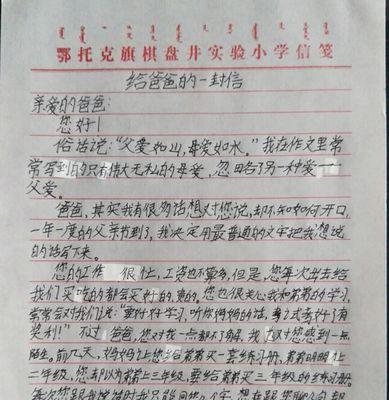 鄂托克旗棋盘井实验小学信笺
给爸爸的一封信
亲爱的爸爸:
您好!
俗话说:“父爱如山,母爱如水。”我在作文里常
常写到的只有伟大无私的母爱,忽略了另一种爱——
父爱。
爸爸,其实我有很多话想对您说,却不知如何开口,
一年一度的父亲节到了,我决定用最普通的文字把我想说
的话写下来。
您的工作很忙,工资也不算多,但是,您每次出去给
我们买吃的都会买好的,贵的,您也很关心我和弟弟的学习,
常常会对我们说:“要好好学习,听您妈妈的话,考了试考好了有
奖利!”不过,爸爸,您对我一点都不了解,我对您感到一点
陌生。前几天,妈妈让您给弟弟买一套练习册,弟弟明明上
二年级,您却以为弟弟上三年级,要给弟弟买三年级的练习册。